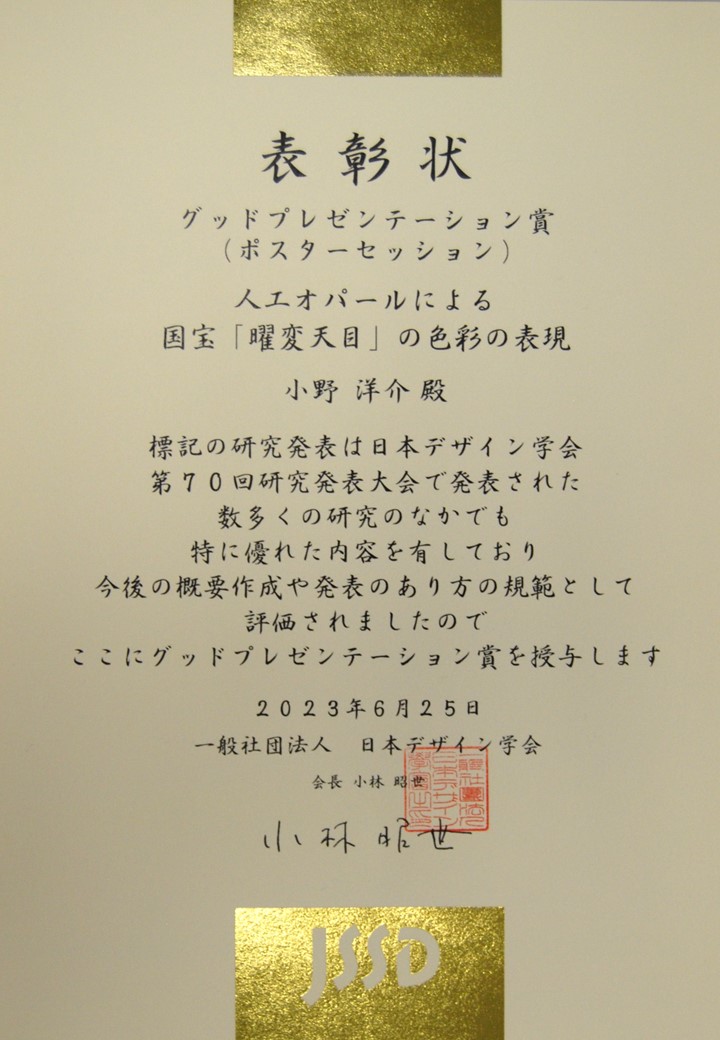 表彰状
グッドプレゼンテーション賞
（ポスターセッション）
人工オパールによる
国宝「曜変天目」の色彩の表現
小野 洋介 殿
標記の研究発表は日本デザイン学会
第７０回研究発表大会で発表された
数多くの研究のなかでも
特に優れた内容を有しており
今後の概要作成や発表のあり方の規範として
評価されましたので
ここにグッドプレゼンテーション賞を授与します
２０２３年６月２５日
一般社団法人　日本デザイン学会
会長 小林 昭世
小林 昭世
JSSD